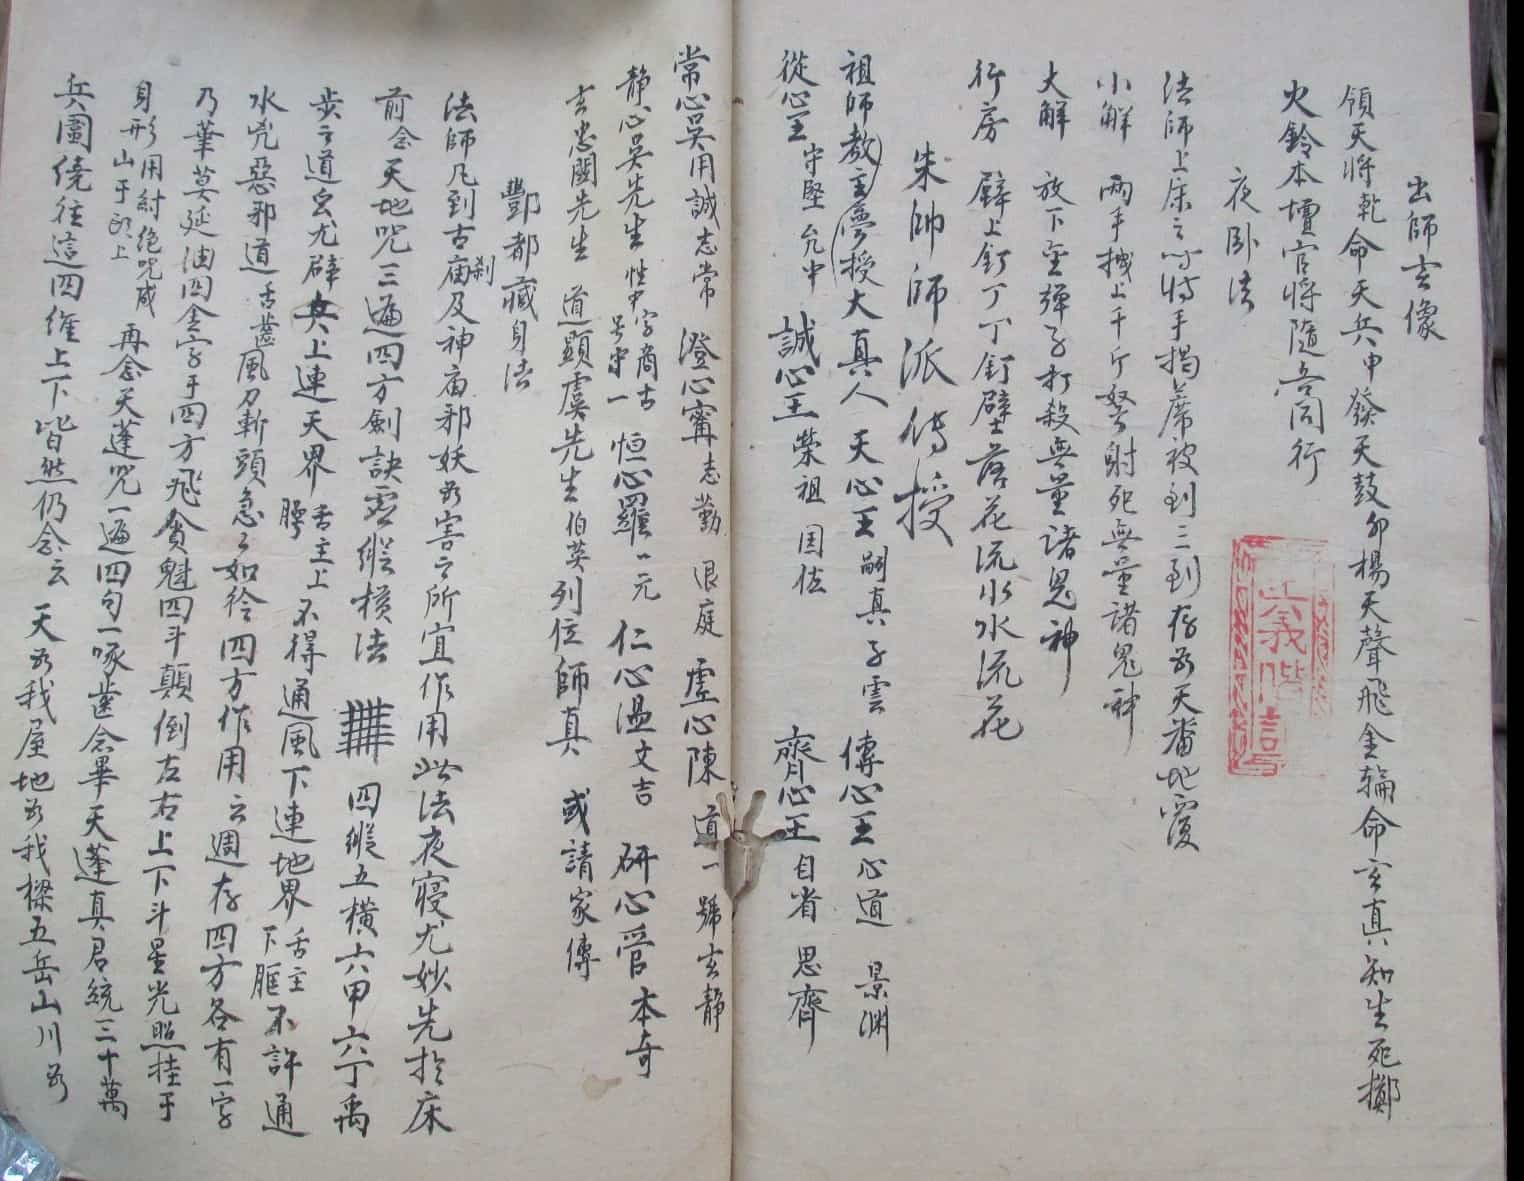 出師玄像
領天將乾命天兵申發天鼓卯楊天聲飛金輪命玄真知生死擲
火鈴本壇官將隨吾同行
夜卧法
法師上床之時將手揭蓆被到三到存為天番地覆
小解 兩手搣上千斤弩射死無量諸鬼神
大解 放下金彈子打殺無量諸鬼神
行房 壁上釘丁丁釘壁落花流水水流花
朱帥師派傳授
祖師教主夢授大真人 天心王嗣真子雲 傳心王心道 景淵
從心王守堅允中 誠心王榮祖國佐 齊心王自省思齊
常心吳用誠志常 澄心甯志勤退庭 虛心陳道一號玄静
静心吳先生性中字商古号中一 恒心羅一元 仁心温文吉 研心管本奇
玄忠關先生 道顯虞先生伯英列位師真 或請家傳
酆都藏身法
法師凡到古廟刹及神廟邪妖為害之所宜作用此法夜寢尤妙先於床
前念天地咒三遍四方劍訣雲縱横法 四縱五横六甲六丁禹
步之道蚩尤辟兵上連天界舌主上腭不得通風下連地界舌主下腭不許通
水咒惡邪道舌齒風刀斬頭急急如衿四方作用云週存四方各有一字
乃華莫延油四金字于四方飛貪魁四斗顛倒左右上下斗星光照挂于
身形用紂绝咒咸山于印上 再念天蓬咒一遍四句一啄齒念畢天蓬真君統三十萬
兵圍繞往這四维上下皆然仍念云 天為我屋地為我樑五岳山川為